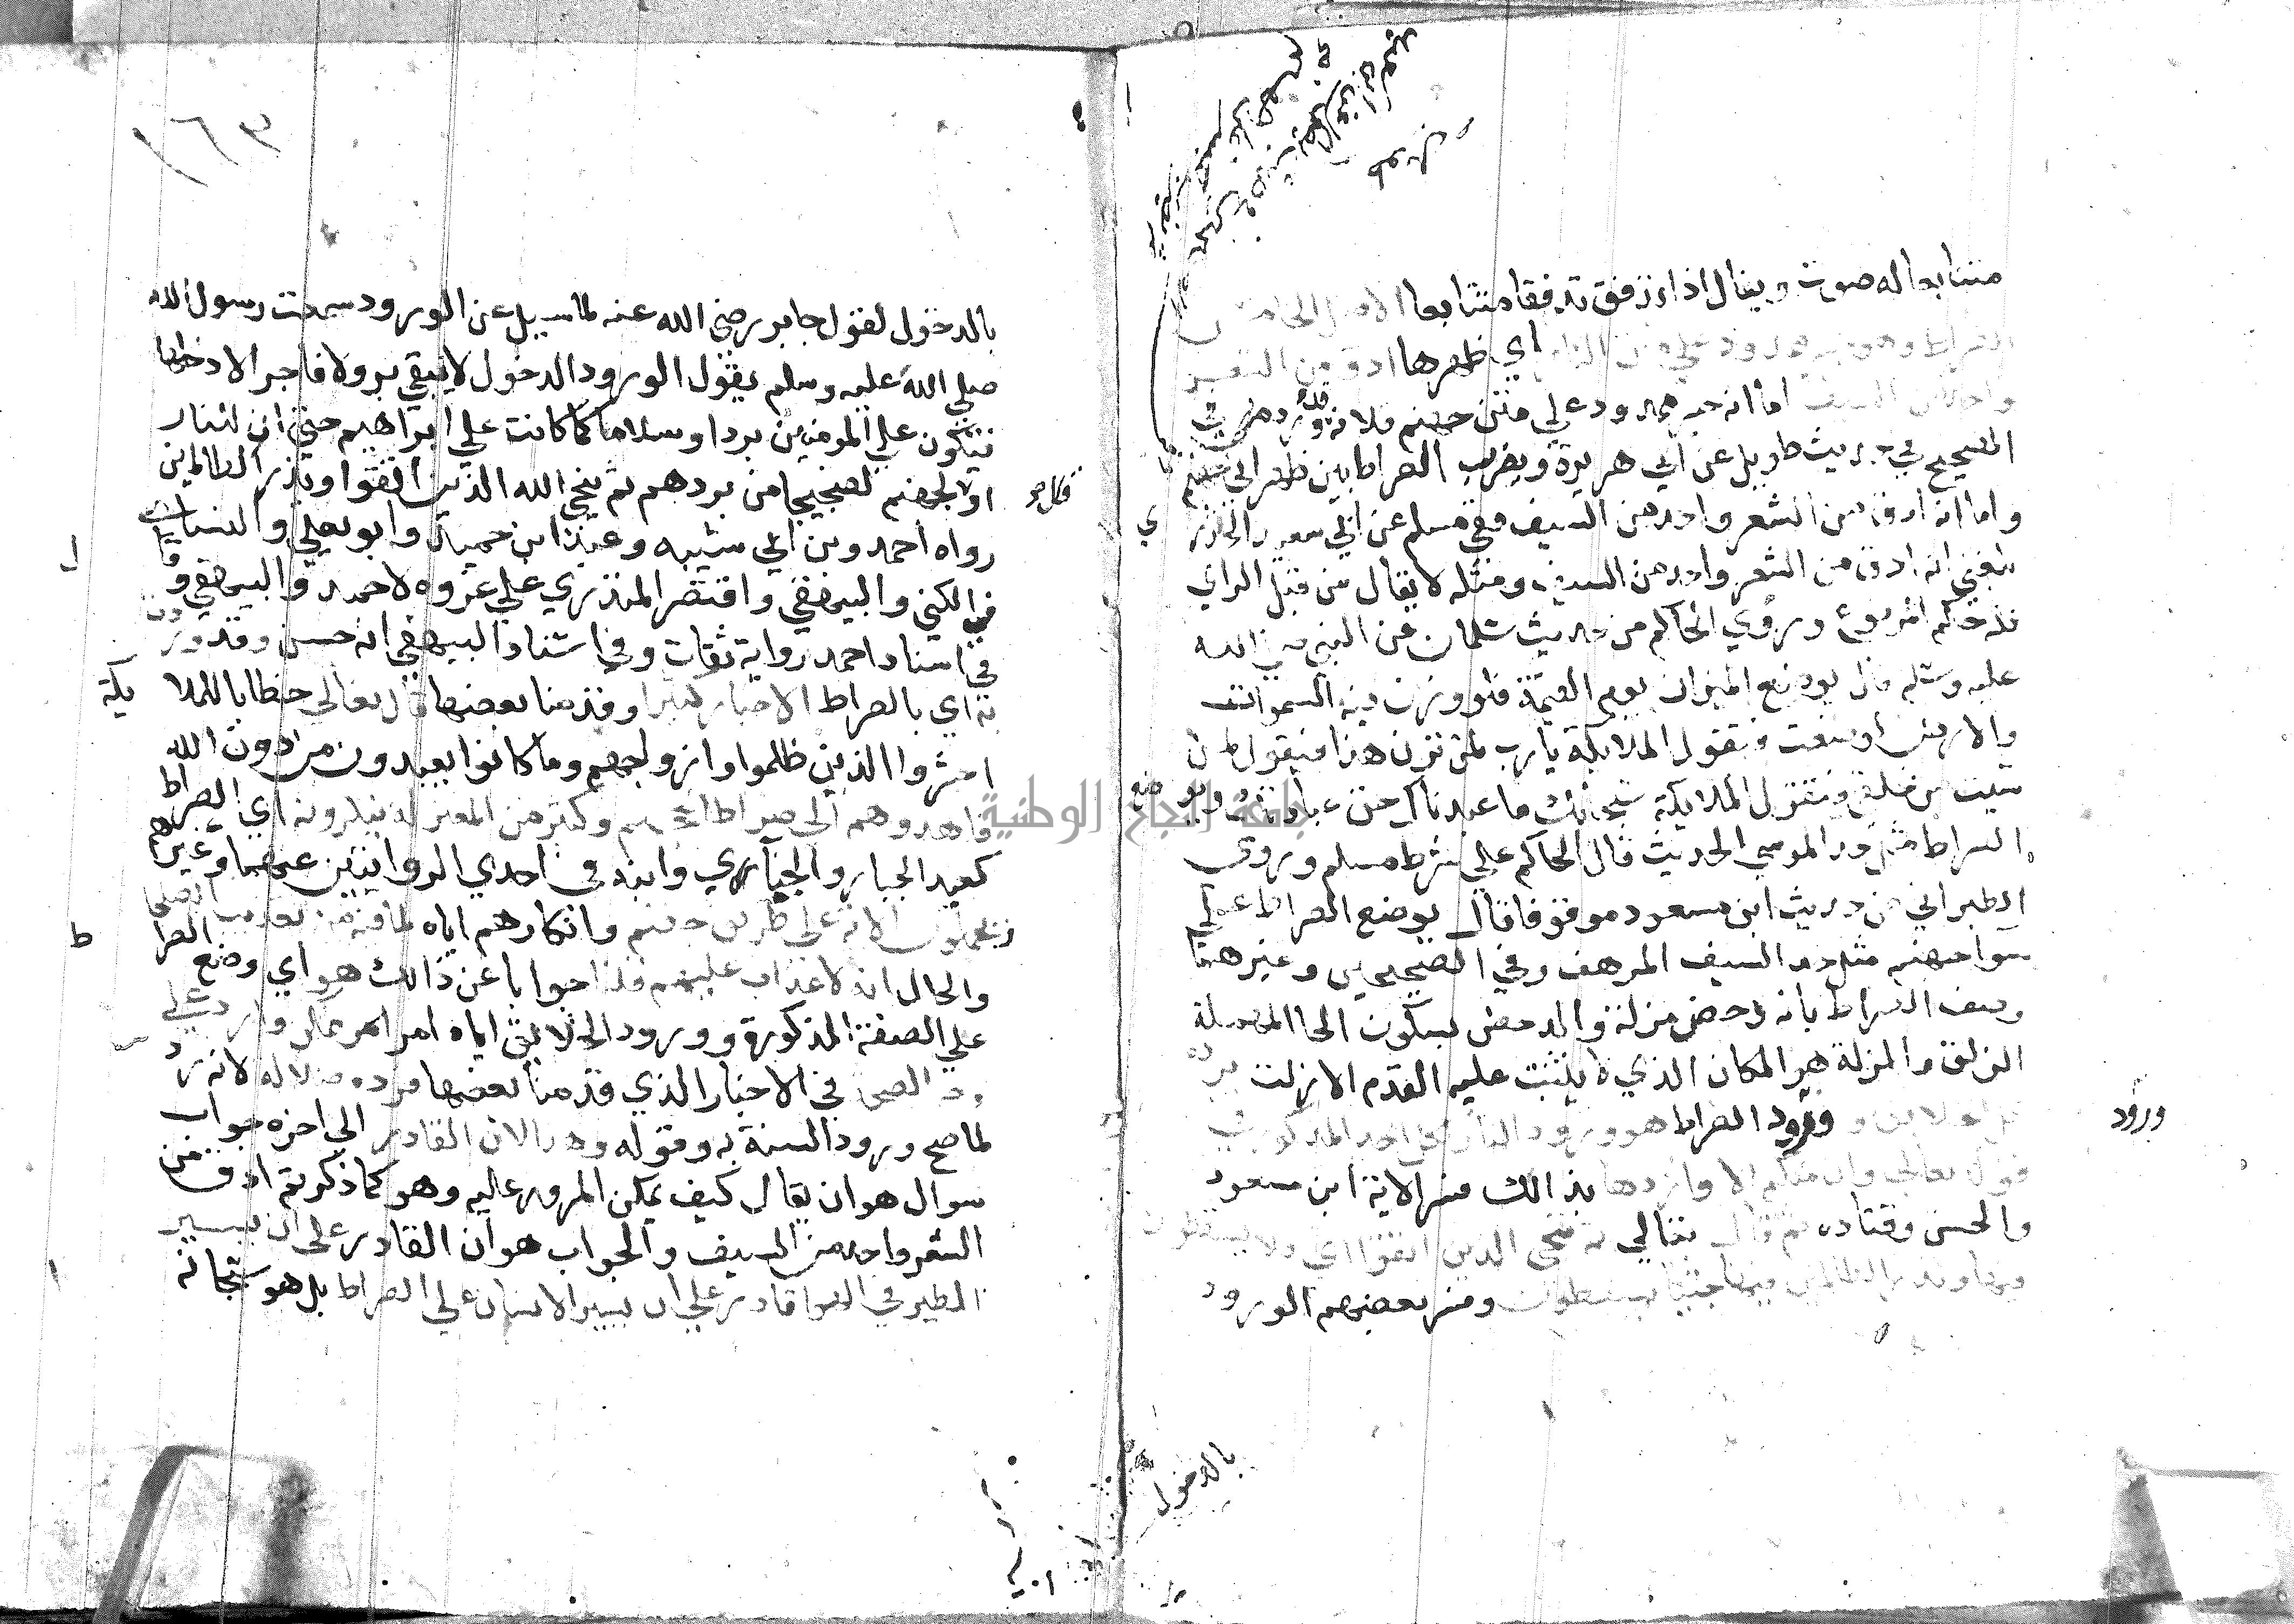 متتابعا له صوت ويقال اذا تدفق تدفقا متتابعا الاصل الخامس
الصراط وهو جسر ممدود على متن النار اي ظهرها ادق من الشعر
واحد من السيف اما انه جسر ممدود على متن جهنم فلانه قد ورد هذا في
الصحيح في حديث طويل عن ابي هريرة ويضرب الصراط بين ظهراني جهنم
واما انه ادق من الشعر واحد من السيف ففي مسلم عن ابي سعيد الخدري
بلغني انه ادق من الشعر واحد من السيف ومثله لا يقال من قبل الراي
فله حكم المرفوع وروي الحاكم من حديث سلمان عن النبي صلى الله
عليه وسلم قال يوضع الميزان يوم القيمة فلو وزن فيه السموات
والارض لوسعت فتقول الملايكة يارب لمن تزن هذا فيقول لمن
شيت من خلقي فتقول الملايكة سبحانك ما عبدناك حق عبادتك ويوضع
الصراط مثل حد الموسي الحديث قال الحاكم على شرط مسلم وروي
الطبراني من حديث ابن مسعود موقوفا قال يوضع الصراط على
سوا جهنم مثل حد السيف المرهف وفي الصحيحين وغيرهما
وصف الصراط بانه دحض مزلة والدحض بسكون الحا المهملة
الزلق والمزلة هو المكان الذي لا يثبت عليه القدم الا زلت يرده
كل الخلايق وورود الصراط هو ورود النار لكل احد المذكور في
قوله تعالى وان منكم الا واردها بذالك فسر الاية ابن مسعود
والحسن وقتاده ثم قال تعالي ثم ننجي الذين اتقوا اي ولا يسقطون
فيها ونذر الظالمين فيها جثيا يسقطون وفسر بعضهم الورود
ورود
بالدخول
١٦٣
بالدخول لقول جابر رضي الله عنه لما سيل عن الورود سمعت رسول الله
صلى الله عليه وسلم يقول الورود الدخول لا يبقي بر ولا فاجر الا دخلها
فتكون علي المومنين بردا وسلاما كما كانت علي ابراهيم حتى ان للنار
او لجهنم لضجيجا من بردهم ثم ينجي الله الذين اتقوا ويذر الظالمين
رواه احمد وبن ابي شيبه وعبد ابن حميد وابو يعلي والنساي
في الكني والبيهقي واقتصر المنذري علي عزوه لاحمد والبيهقي وقال
في اسناد احمد رواية ثقات وفي اسناد البيهقي انه حسن وقد وردت
به اي بالصراط الاخبار كثيرا وقدمنا بعضها قال تعالي خطابا للملا يكة
احشروا الذين ظلموا وازواجهم وما كانوا يعبدون من دون الله
فاهدوهم الي صراط الجحيم وكثير من المعتزلة ينكرونه اي الصراط
كعبد الجبار والجبآيري وابنه في احدي الروايتين عنهما وغيرهم
الاية على طريق جهنم وانكارهم اياه لما فيه من تعذيب الصلحا
والحال انه لا عذاب عليهم قلنا جوابا عن ذالك هو اي وضع الصراط
علي الصفة المذكورة وورود الخلايق اياه امر ممكن وارد علي
في الاخبار الذي قدمنا بعضها فرده ضلاله لانه رد
لما صح ورود السنة به وقوله وهو لان القادر الي اخره جواب
سوال هو ان يقال كيف يمكن المرور عليه وهو كما ذكرتم ادق من
الشعر واحد من السيف والجواب هو ان القادر على ان يسير
الطير في الهوا قادر علي ان يسير الانسان علي الصراط بل هو سبحانه
جامعة النجاح الوطنية